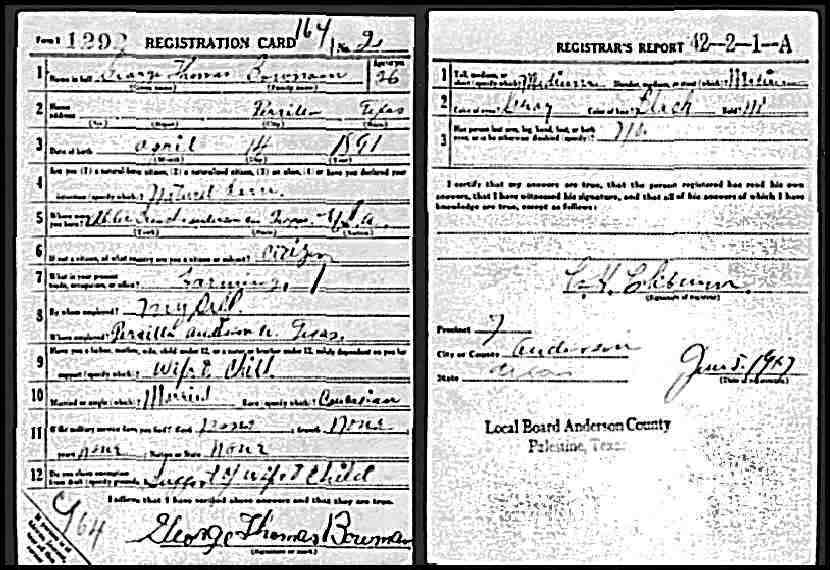 Form 1 1292 REGISTRATION CARD 164 No. 2
1 Name in full George Thomas Bowman Age in yrs 26
(Given name) (Family name)
2 Home address Persilla Texas
(No.) (Street) (City) (State)
3 Date of birth April 14 1891
(Month) (Day) (Year)
4 Are you (1) a natural-born citizen, (2) a naturalized citizen, (3) an alien, (4) or have you declared your
intention (specify which)? Natural
5 Where were you born? Anderson Texas
(Town) (State) (Nation)
6 If not a citizen, of what country are you a citizen or subject? Citizen
7 What is your present trade, occupation, or office? Farming
8 By whom employed? Myself
Where employed? Persilla Anderson Texas
9 Have you a father, mother, wife, child under 12, or a sister or brother under 12, solely dependent on you for
support (specify which)? Wife & Child
10 Married or single (which)? Married Race (specify which)? Caucasian
11 What military service have you had? Rank none branch None
years None Nation or State None
12 Do you claim exemption from draft (specify grounds)? Support of Wife & Child
I affirm that I have verified above answers and that they are true.
164
George Thomas Bowman
(Signature or mark)
REGISTRAR'S REPORT 42-2-1-A
1 Tall, medium, or short (specify which)? Medium Slender, medium, or stout (which)? Medium
2 Color of eyes? Gray Color of hair? Black Bald? No
3 Has person lost arm, leg, hand, foot, or both eyes, or is he otherwise disabled (specify)? No
I certify that my answers are true, that the person registered has read his own
answers, that I have witnessed his signature, and that all of his answers of which I have
knowledge are true, except as follows:
(Signature of registrar)
Precinct 7
City or County Anderson
State Texas
June 5, 1917
(Date of registration)
Local Board Anderson County
Palestine, Texas